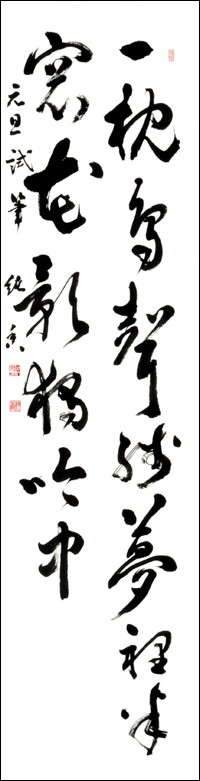 一枕鳥聲殘夢裡半
窓花影獨吟中
元旦試筆 純香